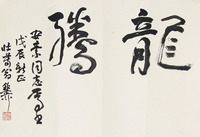 龍騰
安東同志屬書
戊辰新正
壯暮翁稚